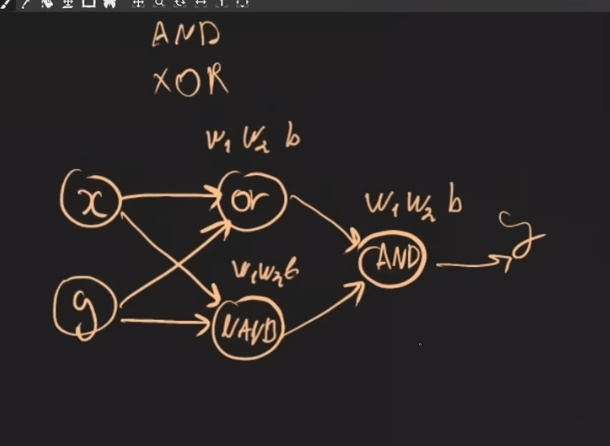 AND
XOR
w₁ w₂ b
x
or
w₁ w₂ b
AND
y
w₁ w₂ b
y
NAND